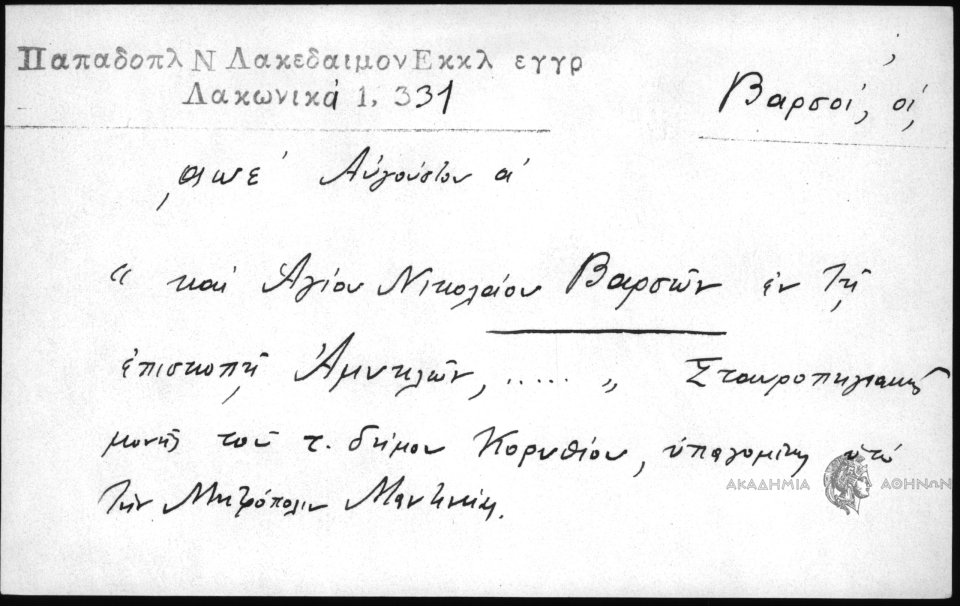 Παπαδοπλ Ν Λακεδαιμον Εκκλ εγγρ
Λακωνικά 1, 331
Βαρσοί, οἱ,
͵αωε΄ Αὐγούστου α΄
“ καὶ Ἁγίου Νικολάου Βαρσῶν ἐν τῇ
ἐπισκοπῇ Ἀμυκλῶν, ..... „ Σταυροπηγιακῆς
μονῆς τοῦ τ. δήμου Κορυθίου, ὑπαγομένης ὑπὸ
τὴν Μητρόπολιν Μαντινείας.
ΑΚΑΔΗΜΙΑ ΑΘΗΝΩΝ